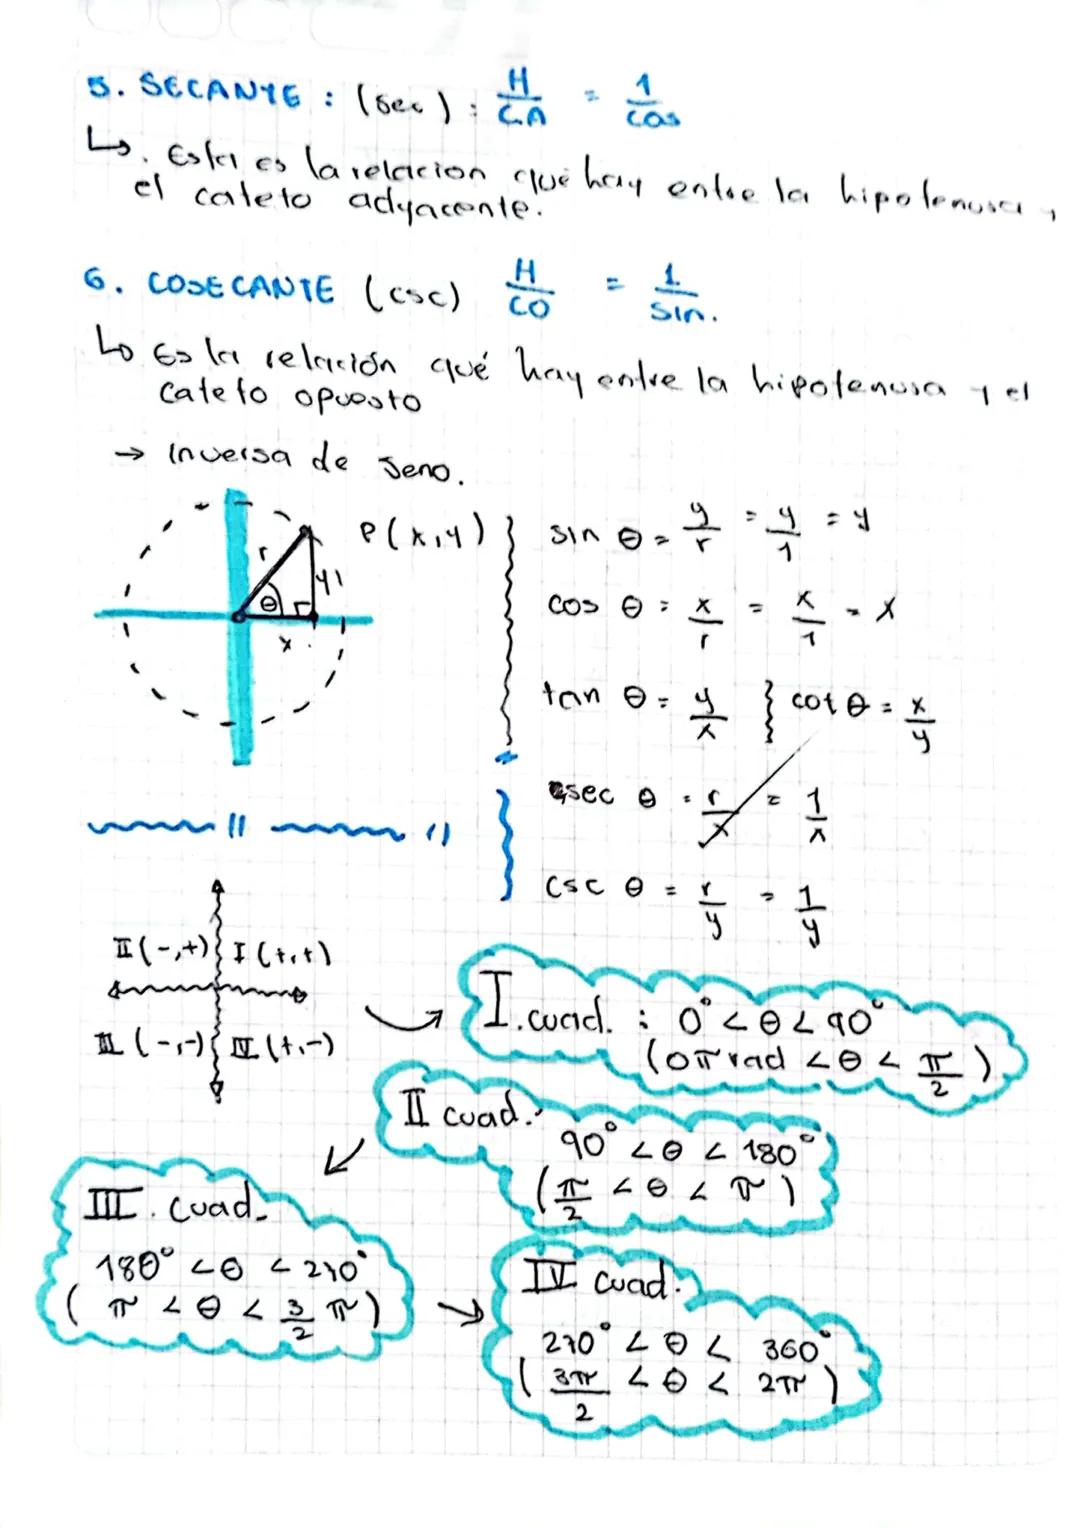 5. SECANTE : (sec) : H/CA = 1/cos
↳. Esta es la relacion qué hay entre la hipotenusa y
el cateto adyacente.
6. COSECANTE (csc) H/CO = 1/sin.
↳ Es la relación qué hay entre la hipotenusa y el
cateto opuesto
→ Inversa de seno.
P(x,y)
r
y
θ
x
sin θ = y/r = y/1 = y
cos θ = x/r = x/1 = x
tan θ = y/x } cot θ = x/y
sec θ = r/x = 1/x
csc θ = r/y = 1/y
II (-,+) I (+,+)
III (-,-) IV (+,-)
I. cuad. : 0° < θ < 90°
(0π rad < θ < π/2)
II cuad.:
90° < θ < 180°
(π/2 < θ < π)
III. cuad.
180° < θ < 270°
(π < θ < 3/2 π)
IV cuad.
270° < θ < 360°
(3π/2 < θ < 2π)